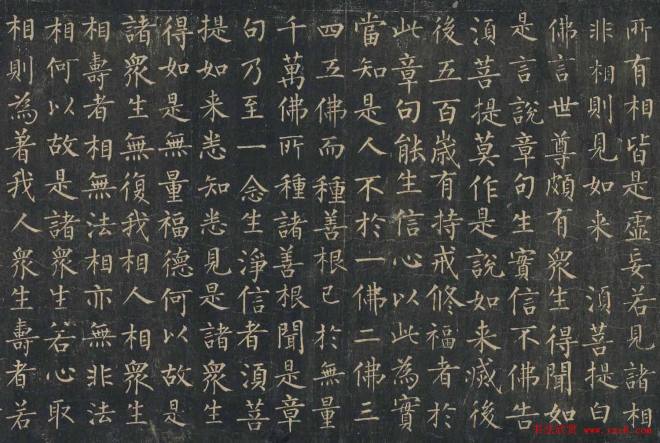 所有相皆是虛妄若見諸相
非相則見如来 湏菩提白
佛言世尊頗有衆生得聞如
是言說章句生實信不佛告
湏菩提莫作是說如来滅後
後五百歲有持戒修福者於
此章句能生信心以此為實
當知是人不於一佛二佛三
四五佛而種善根已於無量
千萬佛所種諸善根聞是章
句乃至一念生淨信者湏菩
提如来悉知悉見是諸衆生
得如是無量福德何以故是
諸衆生無復我相人相衆生
相壽者相無法相亦無非法
相何以故是諸衆生若心取
相則為著我人衆生壽者若
书法欣赏 www.yac8.com